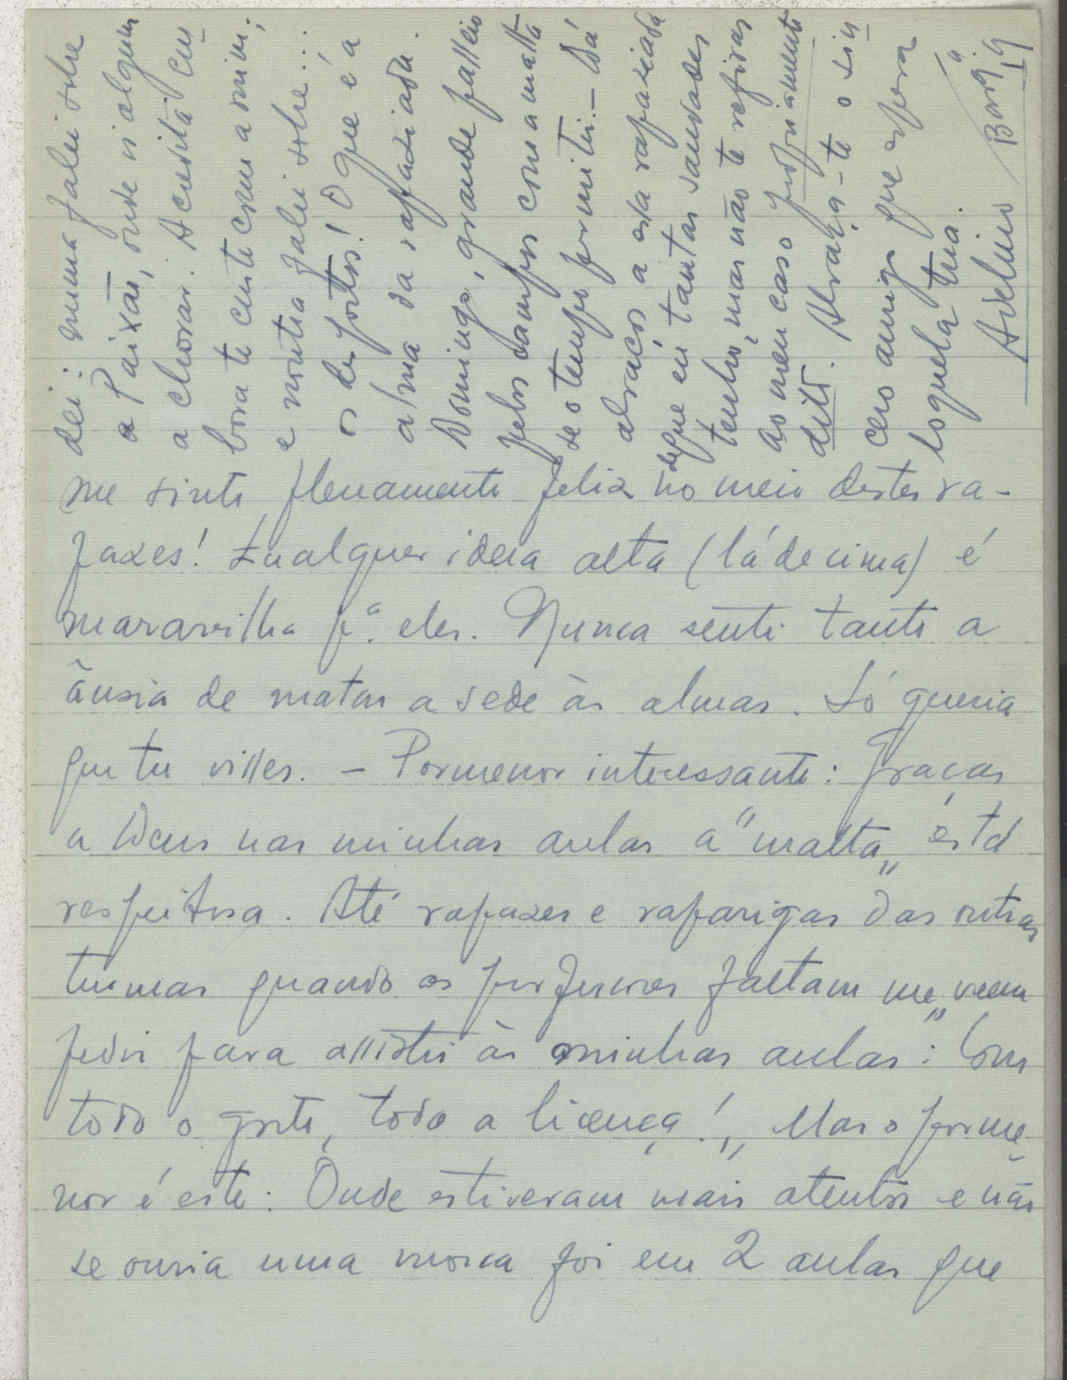 me sinto plenamente feliz no meio destes ra-
pazes! Qualquer ideia alta (lá de cima) é
maravilha pª. eles. Nunca senti tanto a
ânsia de matar a sede às almas. Só queria
que tu visses. - Pormenor interessante: Graças
a Deus nas minhas aulas a "malta" está
respeitosa. Até rapazes e raparigas das outras
turmas quando os professores faltam me "veem
pedir para assistir às minhas aulas: Com
todo o gosto, toda a licença!" Mas o porme-
nor é este: Onde estiveram mais atentos e não
se ouvia uma mosca foi em 2 aulas que
dei: numa falei sobre
a Paixão, onde vi alguem
a chorar. Acredita em-
bora te custe como a mim;
e noutra falei sobre...
os desportos! O que é a
alma da rapaziada.
Domingo, grande passeio
pelos campos com a malta
se o tempo permitir. - Dá
abraços a essa rapaziada
de que eu tantas saudades
tenho, mas não te refiras
ao meu caso propriamente
dito. Abraça-te o sin-
cero amigo que espera
loquela tua.
Avelino